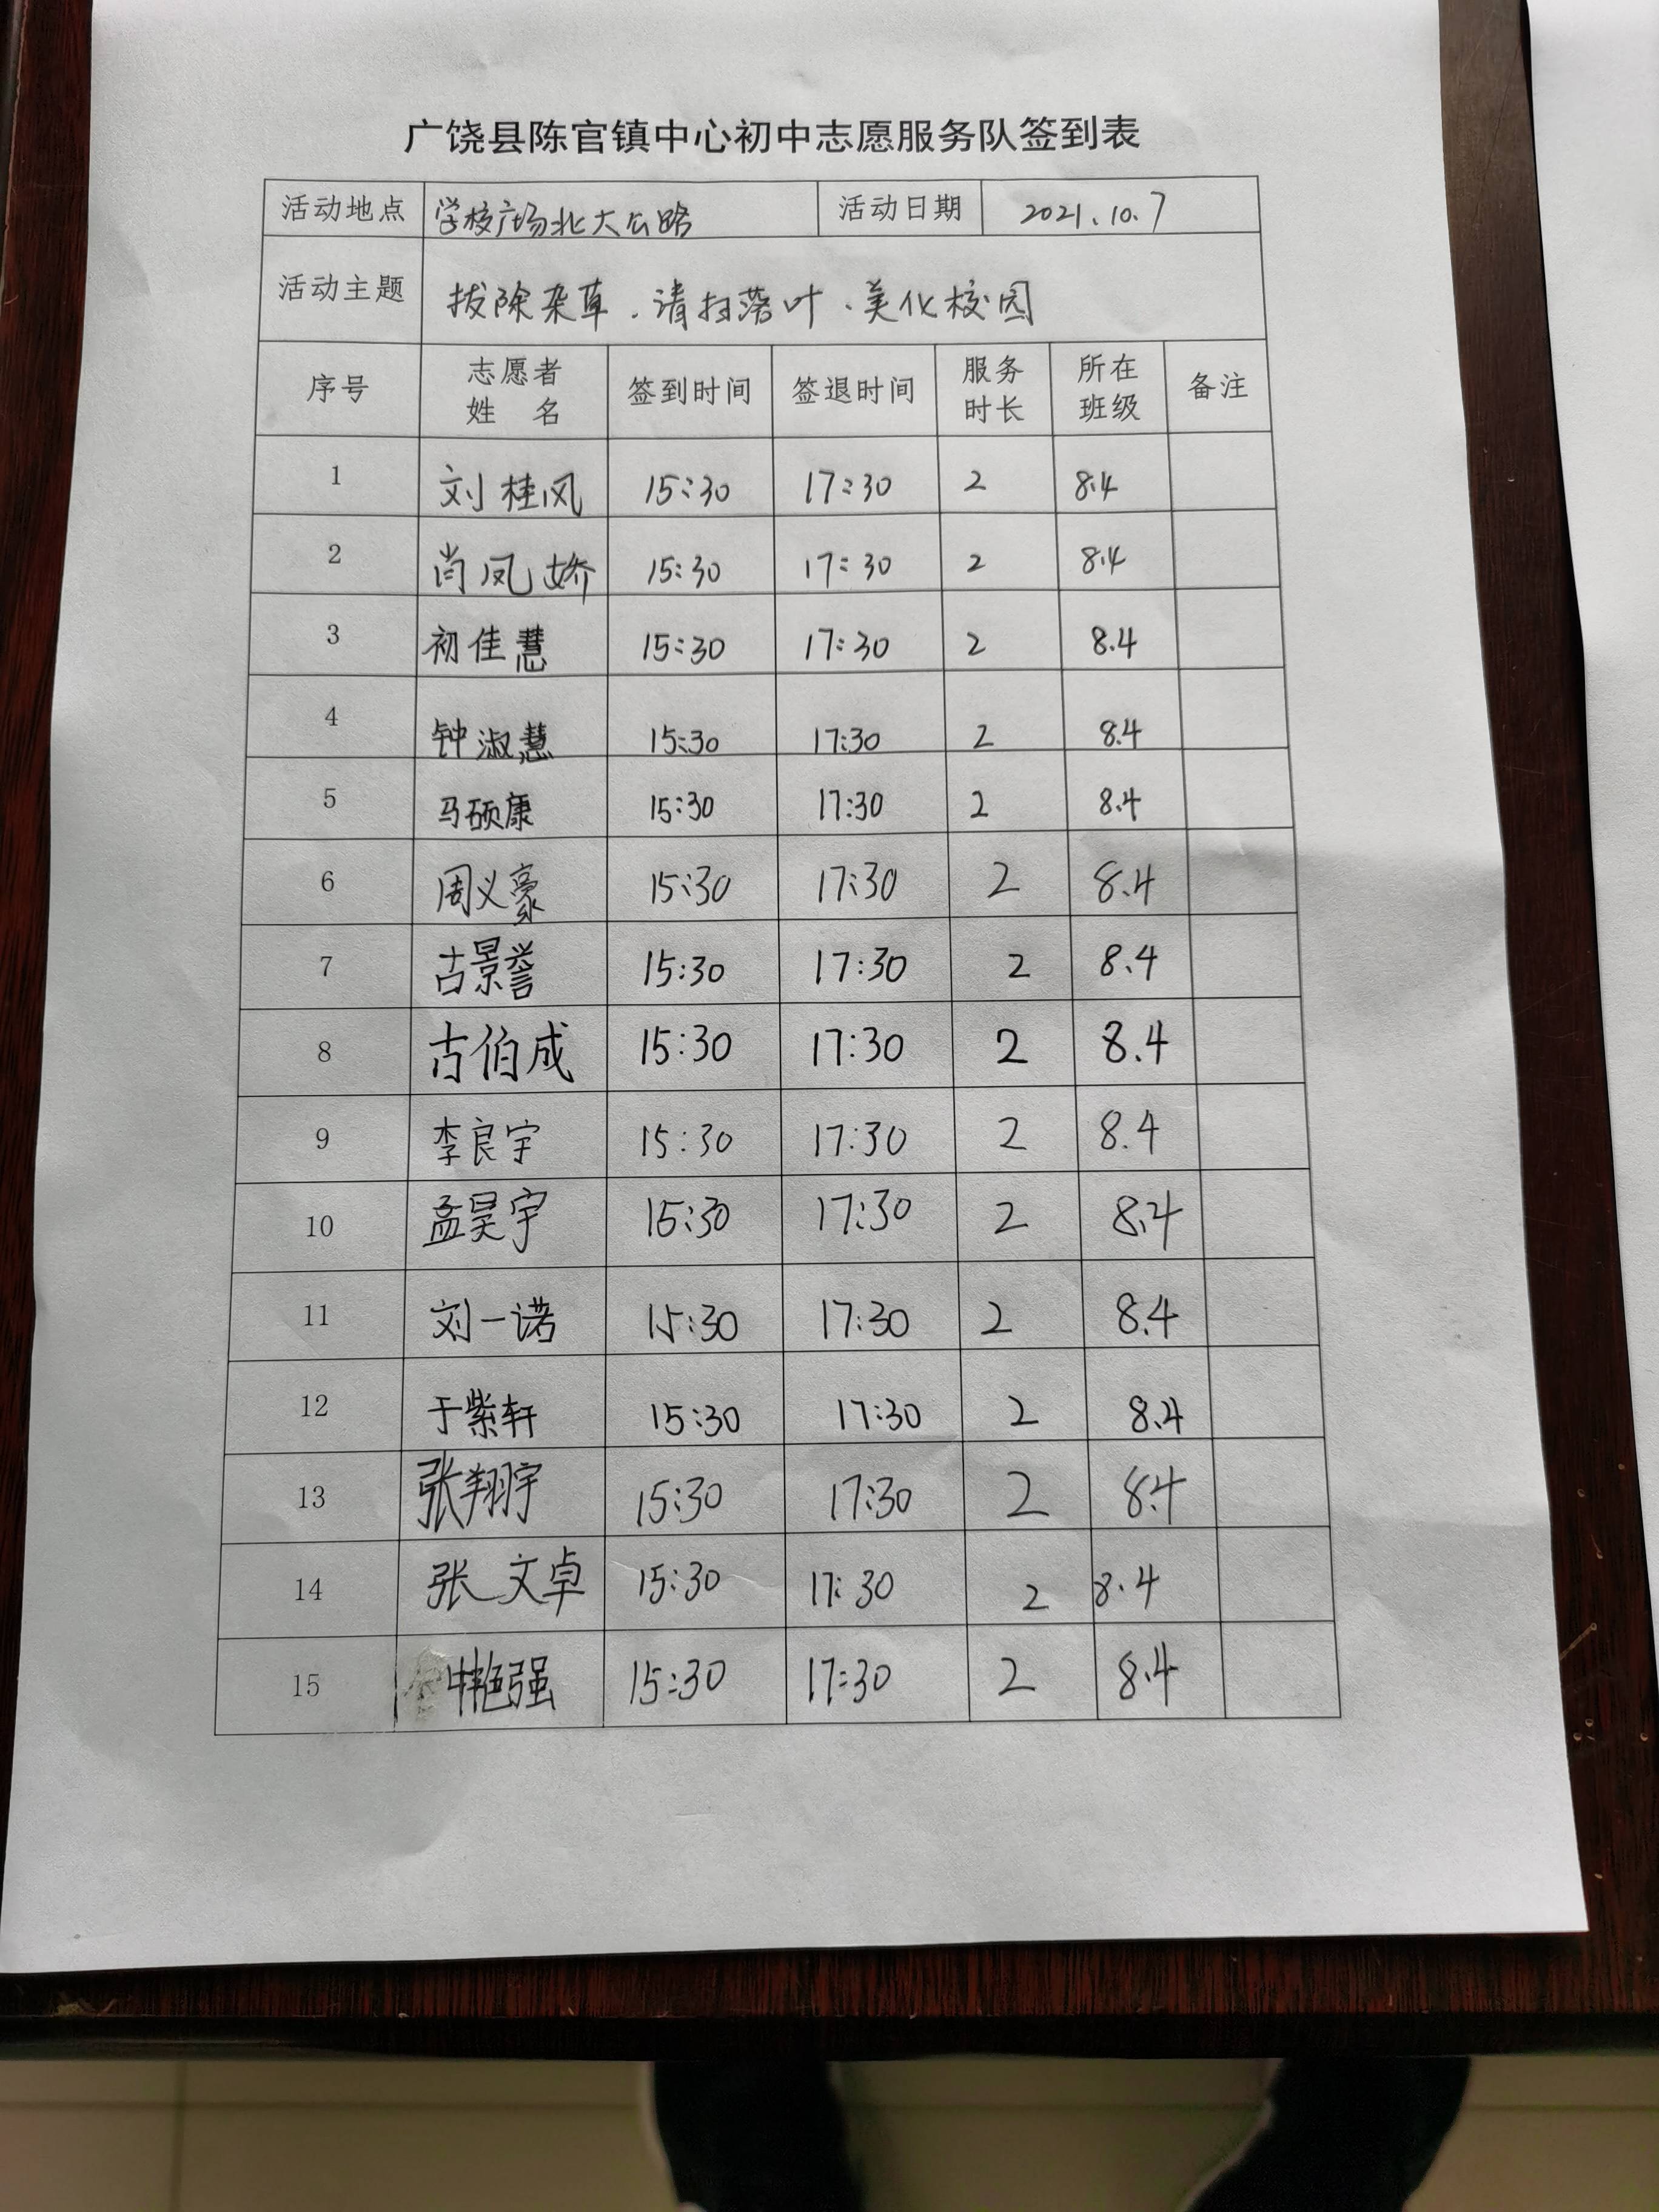 广饶县陈官镇中心初中志愿服务队签到表
活动地点 学校广场北大公路 活动日期 2021.10.7
活动主题 拔除杂草、请扫落叶、美化校园
序号 志愿者姓名 签到时间 签退时间 服务时长 所在班级 备注
1 刘桂风 15:30 17:30 2 8.4
2 肖凤娇 15:30 17:30 2 8.4
3 初佳慧 15:30 17:30 2 8.4
4 钟淑慧 15:30 17:30 2 8.4
5 马硕康 15:30 17:30 2 8.4
6 周义豪 15:30 17:30 2 8.4
7 古景誉 15:30 17:30 2 8.4
8 古伯成 15:30 17:30 2 8.4
9 李良宇 15:30 17:30 2 8.4
10 孟昊宇 15:30 17:30 2 8.4
11 刘一诺 15:30 17:30 2 8.4
12 于紫轩 15:30 17:30 2 8.4
13 张翔宇 15:30 17:30 2 8.4
14 张文卓 15:30 17:30 2 8.4
15 15:30 17:30 2 8.4